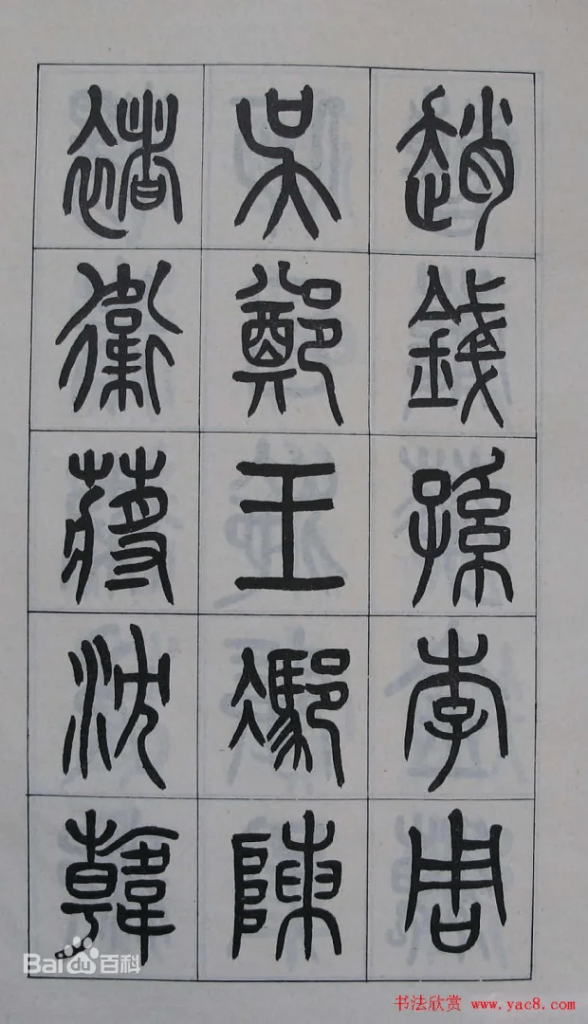 趙錢孫李周
吳鄭王馮陳
褚衛蔣沈韓
Baidu百科
书法欣赏 www.yac8.com